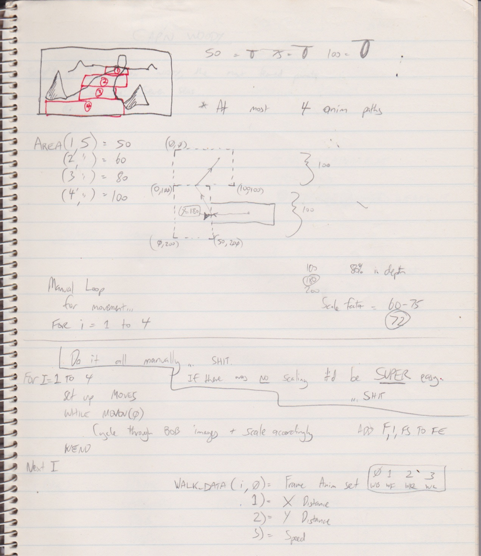 50 = 75 = 100 =
* At most 4 anim paths
AREA(1,5) = 50
(2, ) = 60
(3 = ) = 80
(4, ) = 100
(0,0)
100
(0,100) (100,100)
100
(0,200) (50,200)
100 80% in depth
200
Scale factor = 60-75
72
Manual Loop
for movement...
For i = 1 to 4
Do it all manually... SHIT
If there was no scaling it'd be SUPER easy.
... SHIT
For I=1 to 4
Set up MOVES
WHILE MOVON(0)
Cycle through BOB images + scale accordingly
ADD F1, F3 TO FE
WEND
Next I
WALK.DATA(i,0) = Frame Anim set 0 1 2 3
1) = X Distance
2) = Y Distance
3) = Speed